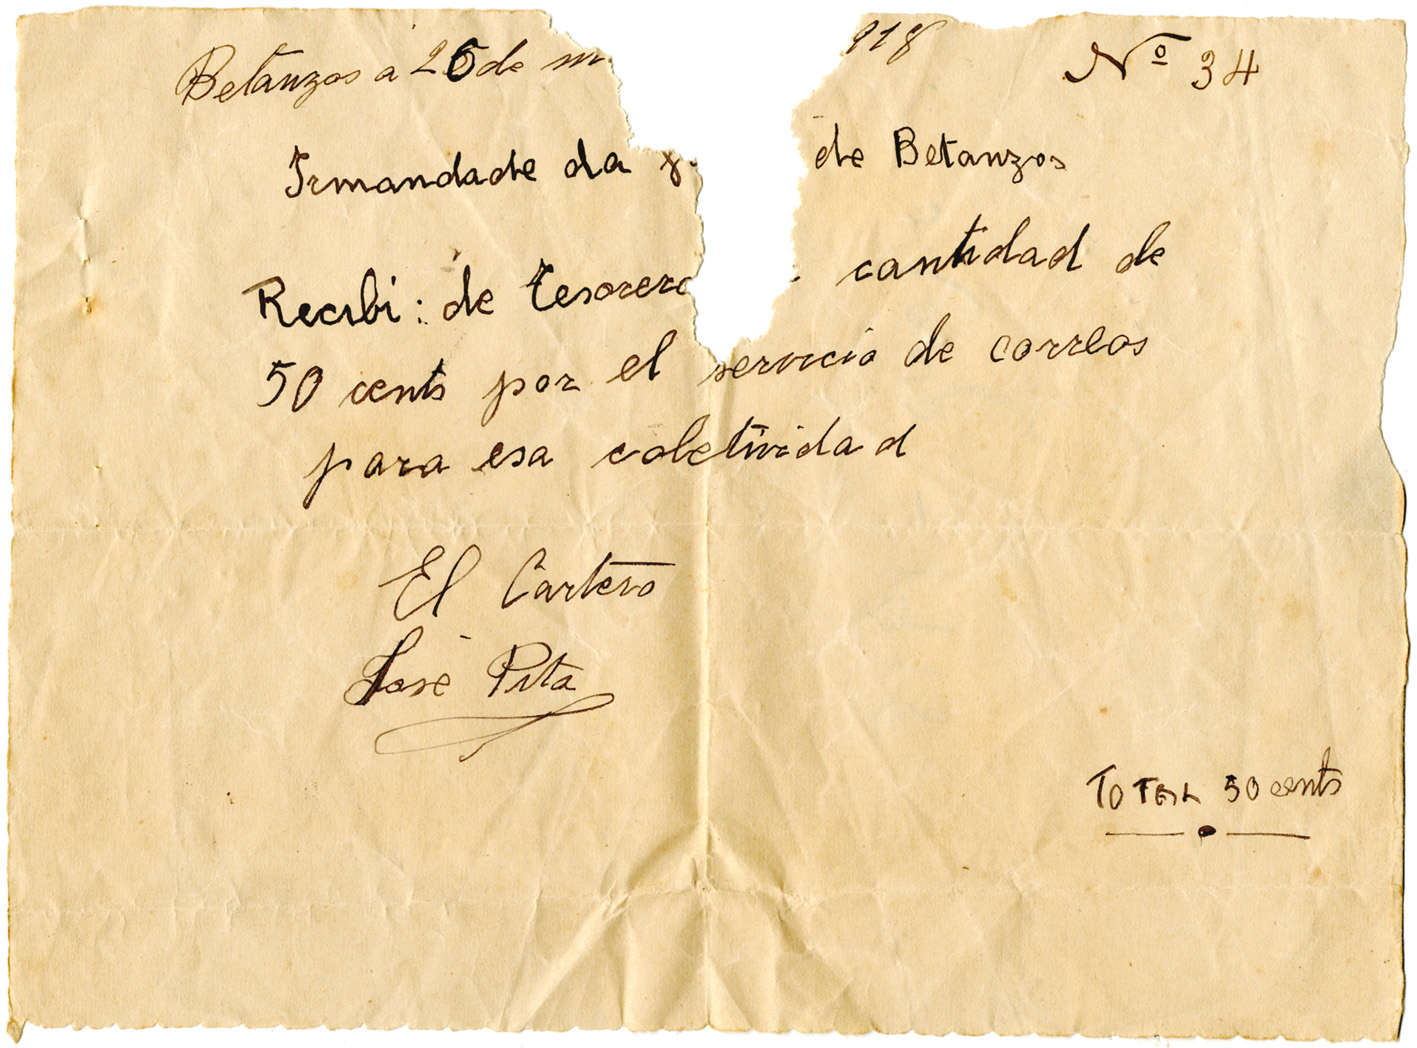 Betanzos a 26 de m 918 Nº 34
Irmandade da de Betanzos
Recibi: de tesorero cantidad de
50 cents por el servicio de correos
para esa coletividad
El Cartero
José Pita
TOTAL 50 cents